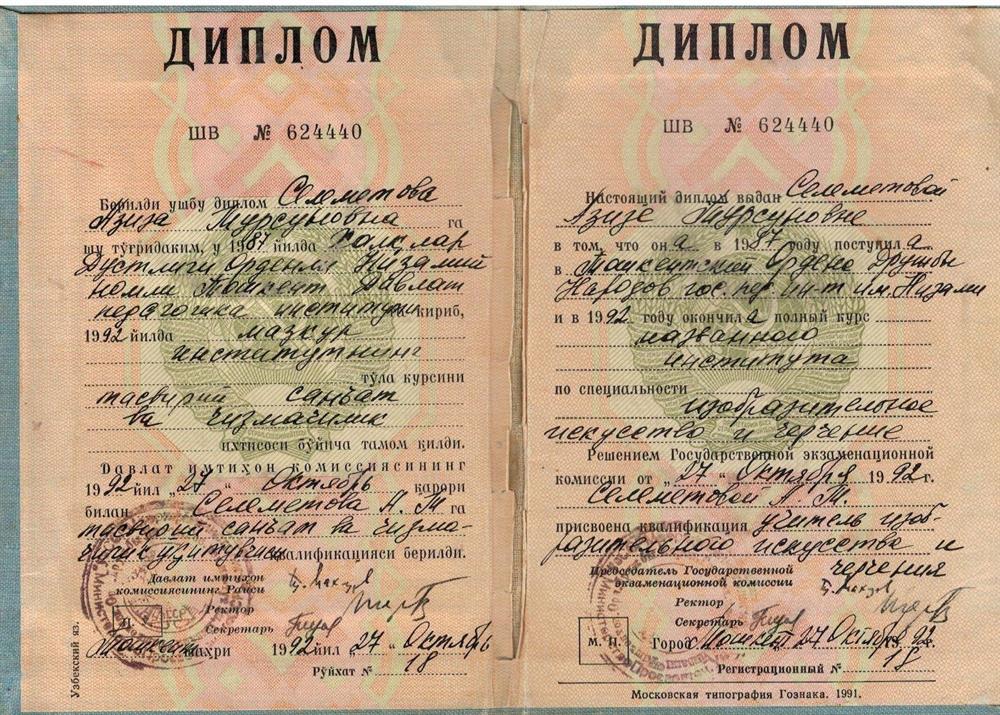 ДИПЛОМ
ШВ № 624440
Берилди ушбу диплом Селеметова
Азиза Турсуновна га
шу тўғридаким, у 1987 йилда Халқлар
Дустлиги Орденли Низамий
номли Ташкент Давлат
педагогика институти кириб,
1992 йилда мазкур
институтнинг
тўла курсини
тасвирий санъат
ва чизмачилик
ихтисоси бўйича тамом қилди.
Давлат имтиҳон комиссиясининг
1992 йил „27" Октябрь қарори
билан Селеметова А. Т га
тасвирий санъат ва чизма-
чилик уқитувчиси квалификацияси берилди.
Давлат имтиҳон
комиссиясининг Раиси
Ректор
Секретарь
Ташкент шаҳри 1992 йил „27 Октябрь
Рўйхат № 18
Узбекский яз.
ДИПЛОМ
ШВ № 624440
Настоящий диплом выдан Селеметовой
Азизе Турсуновне
в том, что она в 1987 году поступила
в Ташкентский Ордена Дружбы
Народов гос. пед. ин-т им. Низами
и в 1992 году окончила полный курс
названного
института
по специальности
изобразительное
искусство и черчение
Решением Государственной экзаменационной
комиссии от „27" Октября 1992 г.
Селеметовой А. Т
присвоена квалификация учитель изоб-
разительного искусства и
черчения
Председатель Государственной
экзаменационной комиссии
Ректор
Секретарь
М. П. Город Ташкент 27 Октября 1992 г.
Регистрационный № 18
Московская типография Гознака. 1991.